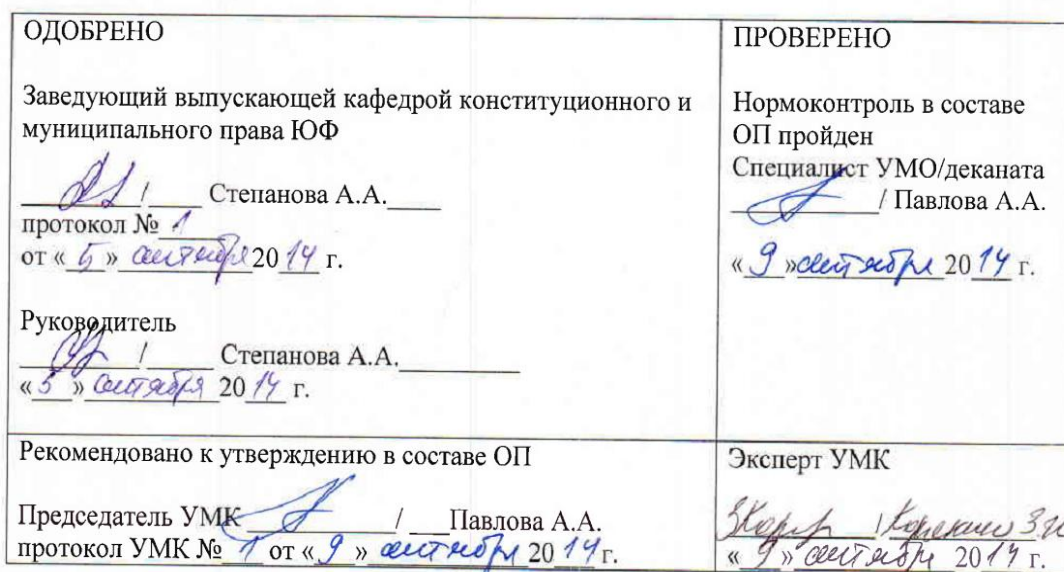 ОДОБРЕНО
Заведующий выпускающей кафедрой конституционного и
муниципального права ЮФ
/ Степанова А.А.
протокол № 1
от « 5 » сентября 20 14 г.
Руководитель
/ Степанова А.А.
« 5 » сентября 20 14 г.
ПРОВЕРЕНО
Нормоконтроль в составе
ОП пройден
Специалист УМО/деканата
/ Павлова А.А.
« 9 » сентября 20 14 г.
Рекомендовано к утверждению в составе ОП
Председатель УМК / Павлова А.А.
протокол УМК № 1 от « 9 » сентября 20 14 г.
Эксперт УМК
/
« 9 » сентября 2014 г.